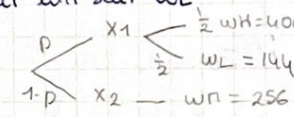 p x1 1/2 wH = 400
1/2 wL = 144
1-p x2 wM = 256